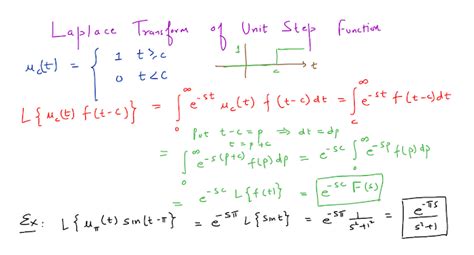 Laplace Transform of Unit Step Function
μc(t) = { 1 t≥c
0 t<c
1 c t
L{μc(t) f(t-c)} = ∫₀^∞ e^-st μc(t) f(t-c)dt = ∫c^∞ e^-st f(t-c)dt
Put t-c=p ⇒ dt=dp
t=p+c
= ∫₀^∞ e^-s(p+c) f(p)dp = e^-sc ∫₀^∞ e^-sp f(p)dp
= e^-sc L{f(t)} = e^-sc F(s)
Ex: L{μπ(t) Sin(t-π)} = e^-sπ L{Sint} = e^-sπ 1/(s²+1²) = e^-πs/(s²+1)